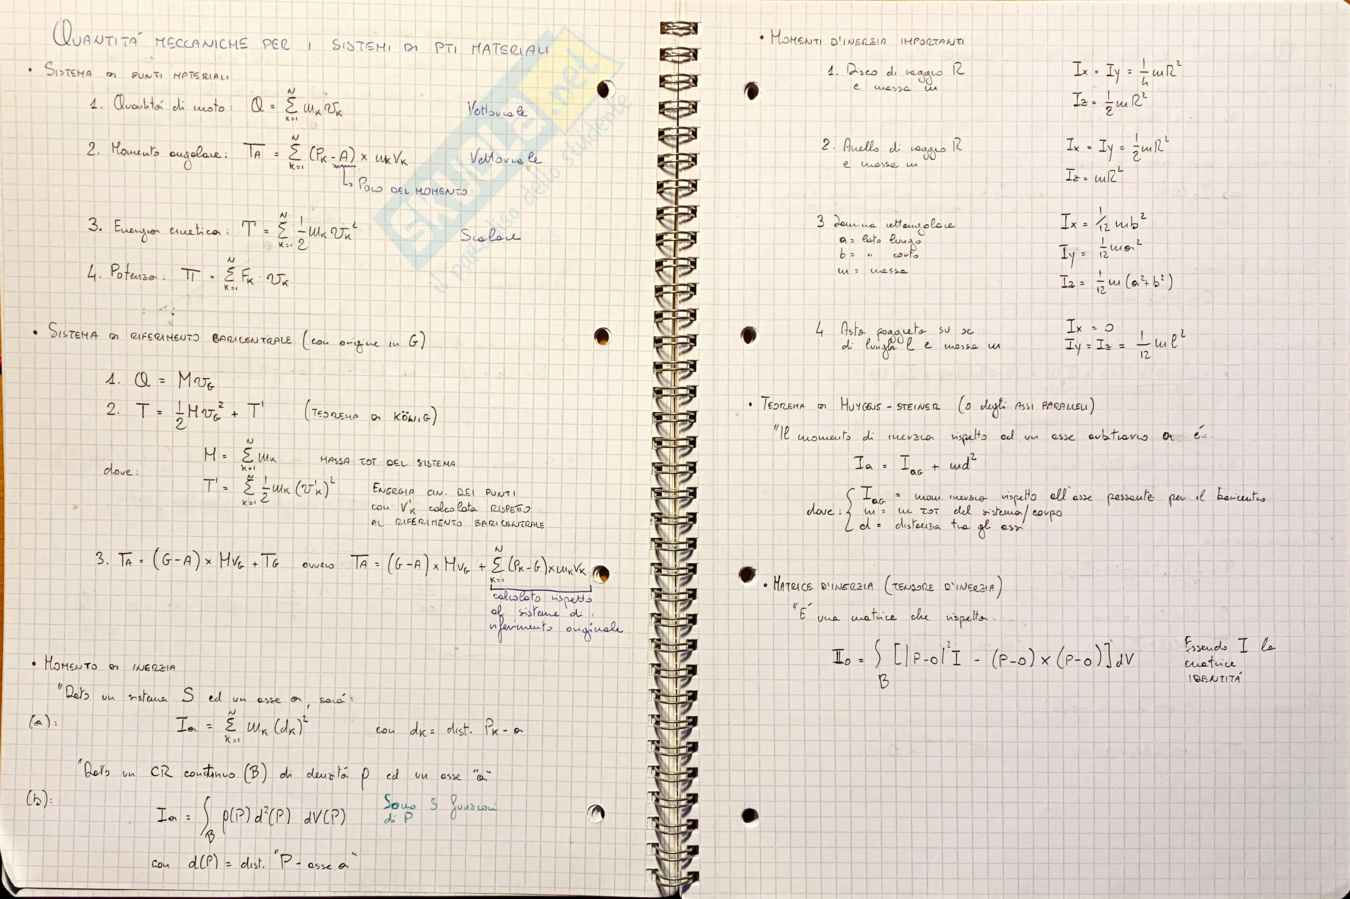 QUANTITÀ MECCANICHE PER I SISTEMI DI PTI MATERIALI
• SISTEMA DI PUNTI MATERIALI
1. Quantità di moto: Q = Σ_{K=1}^{N} m_K v_K Vettoriale
2. Momento angolare: Γ_A = Σ_{K=1}^{N} (P_K - A) × m_K v_K Vettoriale
↳ POLO DEL MOMENTO
3. Energia cinetica: T = Σ_{K=1}^{N} 1/2 m_K v_K² Scalare
4. Potenza: Π = Σ_{K=1}^{N} F_K · v_K
• SISTEMA DI RIFERIMENTO BARICENTRALE (con origine in G)
1. Q = M v_G
2. T = 1/2 M v_G² + T' (TEOREMA DI KÖNIG)
dove: M = Σ_{K=1}^{N} m_K MASSA TOT DEL SISTEMA
T' = Σ_{K=1}^{N} 1/2 m_K (v'_K)² ENERGIA CIN. DEI PUNTI
CON V'_K calcolata RISPETTO
AL RIFERIMENTO BARICENTRALE
3. Γ_A = (G-A) × M v_G + Γ_G ovvero Γ_A = (G-A) × M v_G + Σ_{K=1}^{N} (P_K - G) × m_K v_K
calcolato rispetto
al sistema di
riferimento originale
• MOMENTO DI INERZIA
"Dato un sistema S ed un asse a, sarà:
(a): I_a = Σ_{K=1}^{N} m_K (d_K)² con d_K = dist. P_K - a
"Dato un CR continuo (B) di densità ρ ed un asse "a"
(b): I_a = ∫_B ρ(P) d²(P) dV(P) Sono 3 funzioni
di P
con d(P) = dist. "P - asse a"
• MOMENTI D'INERZIA IMPORTANTI
1. Disco di raggio R
e massa m
Ix = Iy = 1/4 mR²
Iz = 1/2 mR²
2. Anello di raggio R
e massa m
Ix = Iy = 1/2 mR²
Iz = mR²
3 Lamina rettangolare
a = lato lungo
b = " corto
m = massa
Ix = 1/12 mb²
Iy = 1/12 ma²
Iz = 1/12 m (a²+b²)
4 Asta poggiata su x
di lungh. l e massa m
Ix = 0
Iy = Iz = 1/12 ml²
• TEOREMA DI HUYGENS-STEINER (o degli ASSI PARALLELI)
"Il momento di inerzia rispetto ad un asse arbitrario a è:
I_a = I_{aG} + md²
dove: { I_{aG} = mom inerzia rispetto all'asse passante per il baricentro
m = m TOT del sistema/corpo
d = distanza tra gli assi
• MATRICE D'INERZIA (TENSORE D'INERZIA)
"È una matrice che rispetta:
I_O = ∫_B [|P-O|² I - (P-O) × (P-O)] dV
Essendo I la
matrice
IDENTITÀ
skuola.net
il paradiso dello studente